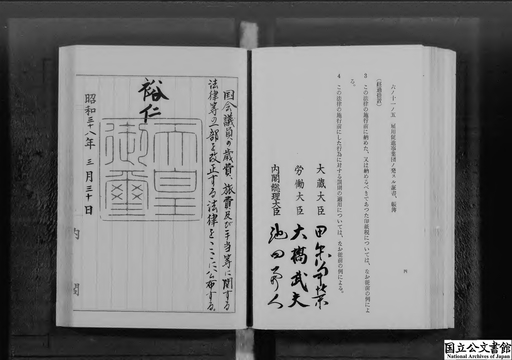 六ノ十一ノ五
ノ発スル証書、帳簿
(経過規定)
3 この法律の施行前に納めた、又は納めるべきであつた印紙税については、なお従前の例によ
る。
4 この法律の施行前にした行為に対する罰則の適用については、なお従前の例による。
大蔵大臣 田中角栄
労働大臣 大橋武夫
内閣総理大臣 池田勇人
国会議員の歳費、旅費及び手当等に関する
法律等の一部を改正する法律をここに公布する。
裕仁
天皇
御璽
昭和三十八年三月三十日
内閣
国立公文書館
National Archives of Japan